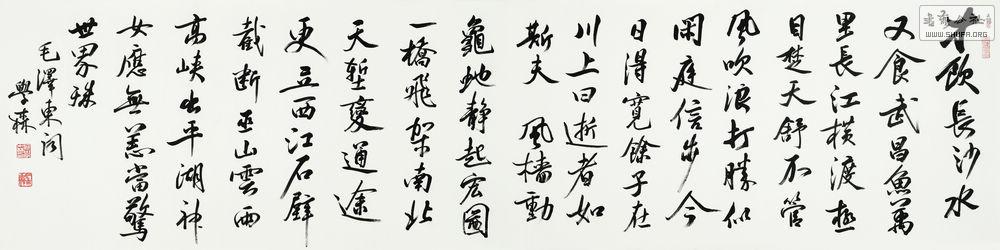 才飲長沙水
又食武昌魚萬
里長江橫渡極
目楚天舒不管
風吹浪打勝似
閑庭信步今
日得寬餘子在
川上曰逝者如
斯夫 風檣動
龜蛇靜起宏圖
一橋飛架南北
天塹變通途
更立西江石壁
截斷巫山雲雨
高峽出平湖神
女應無恙當驚
世界殊
毛澤東詞
學霖
WWW.SHUFA.ORG